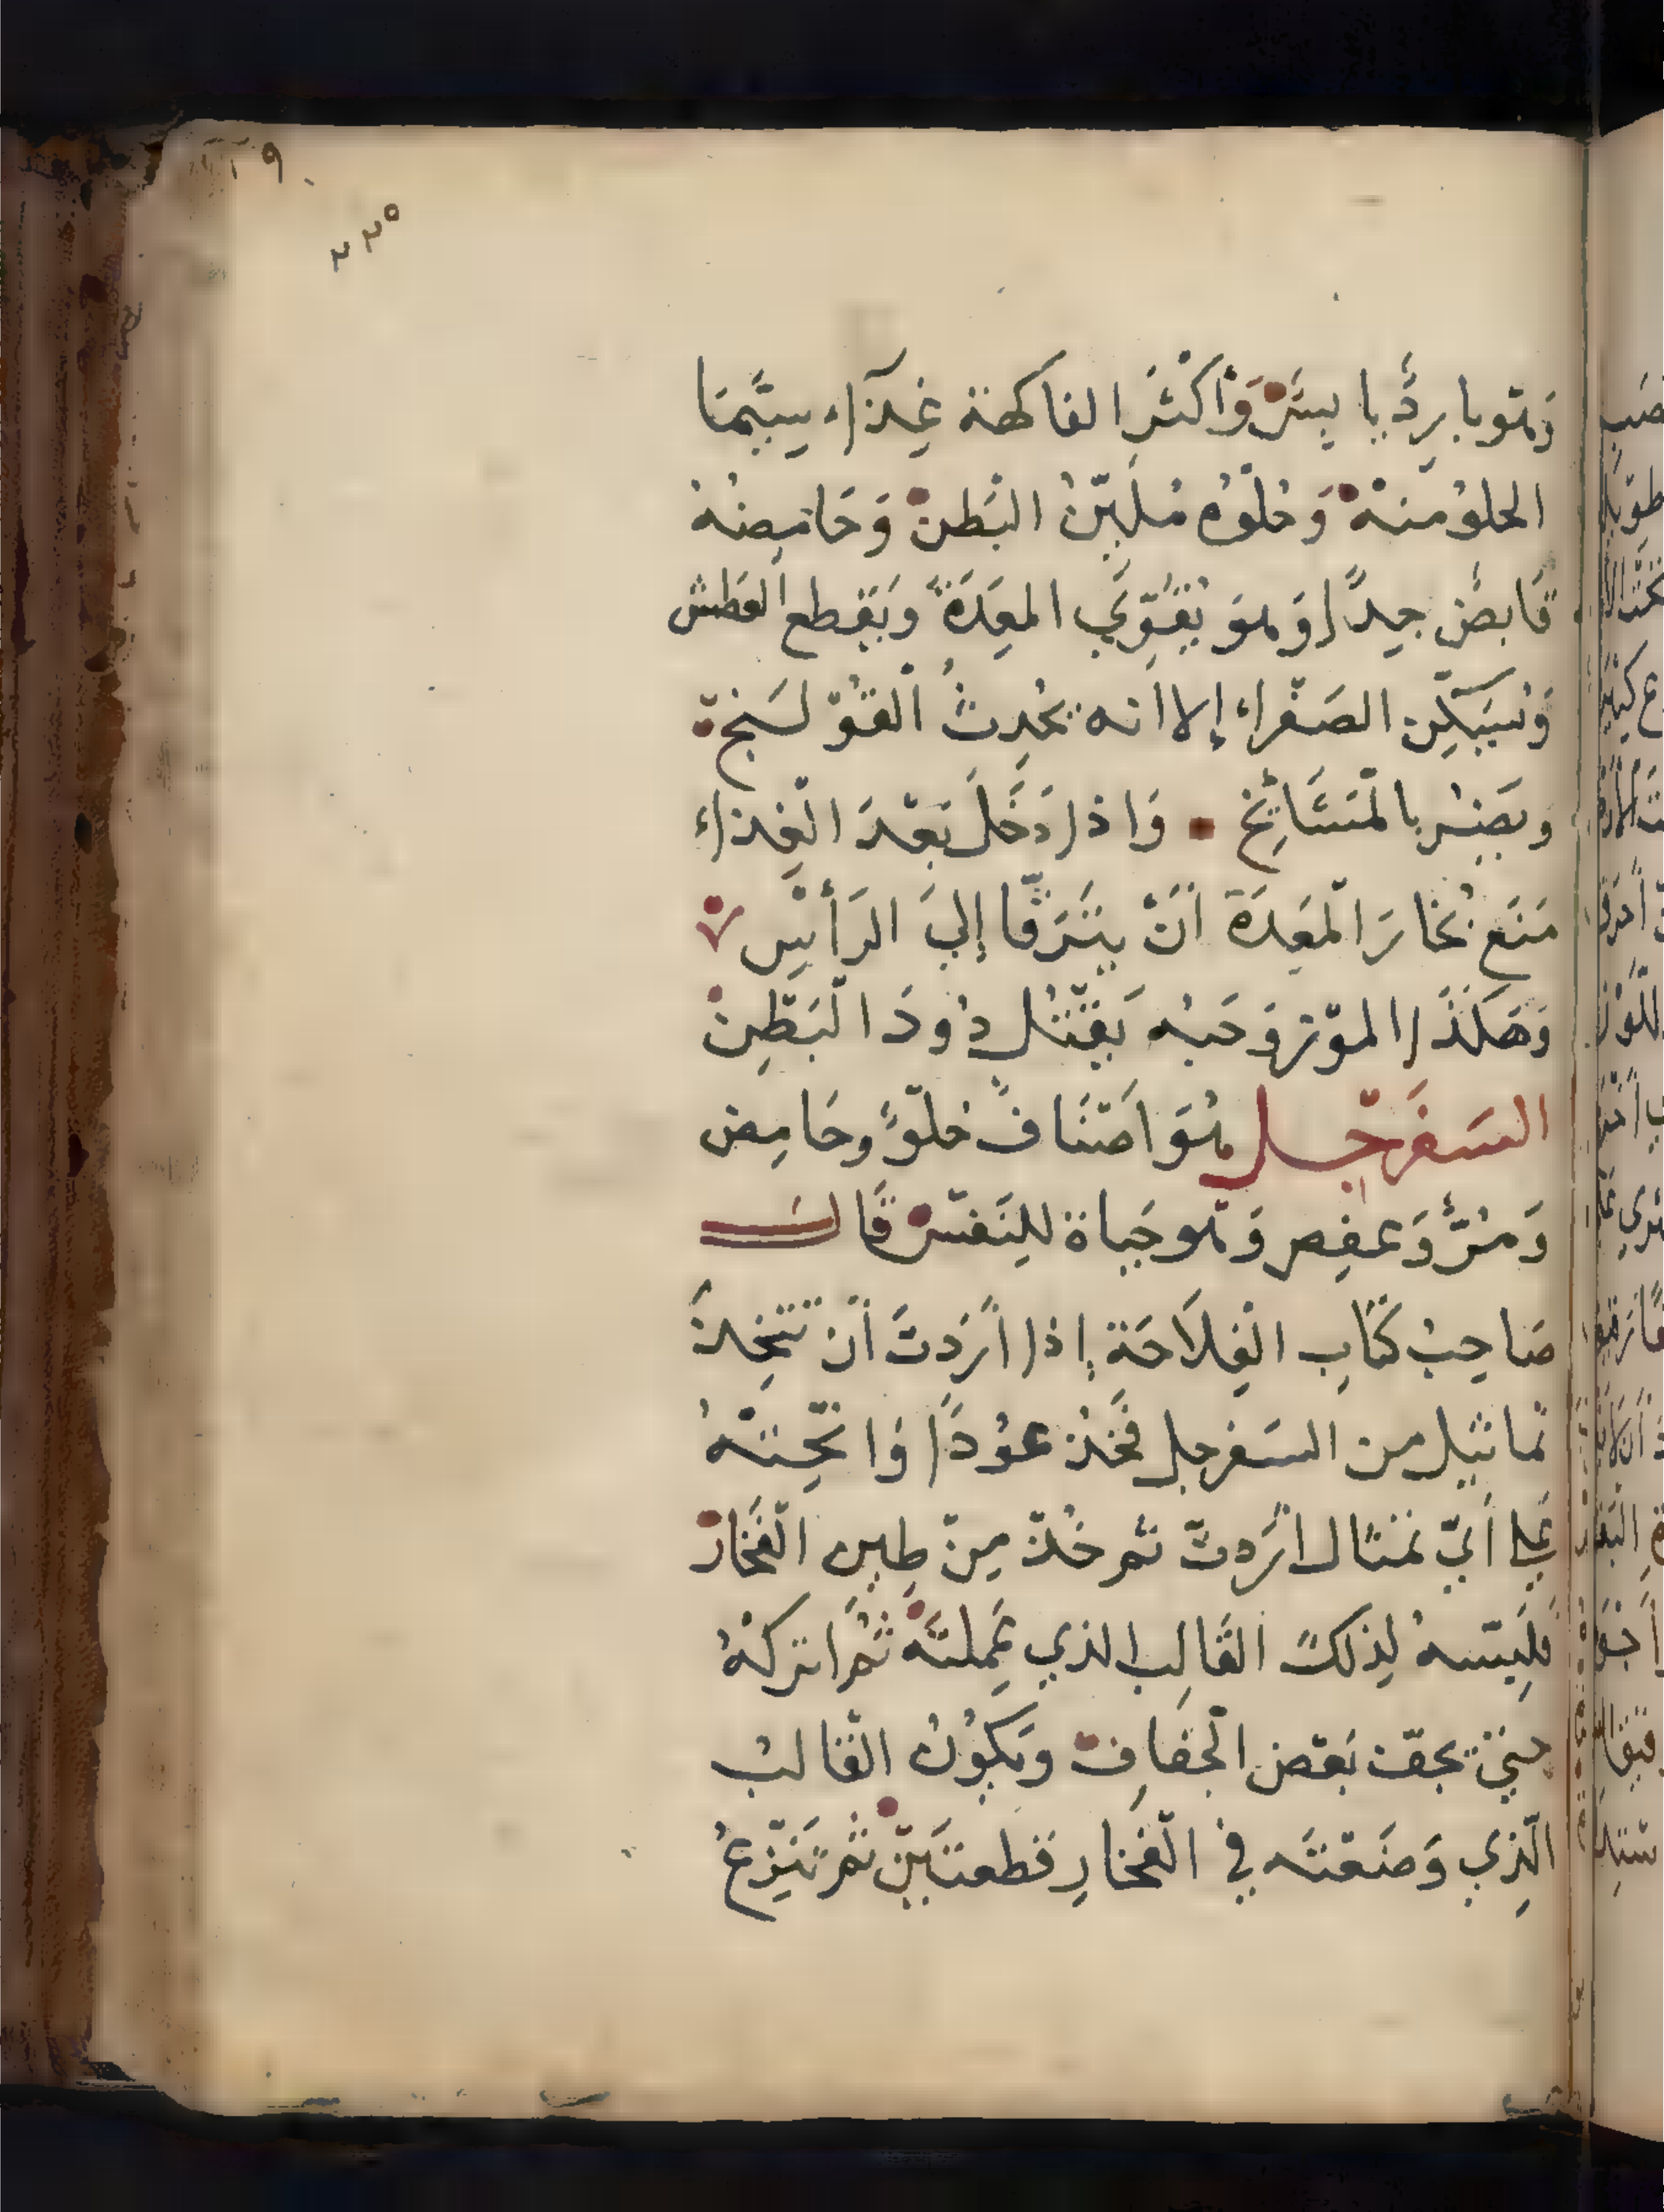 وَهُوَ بارِدٌ يابسٌ وَأكْثَرُ الفاكهة غِذَآءً سِيَّمَا
الحلوُ منهْ وَحُلْوُه مُلَيِّنُ البَطنْ وَحَامِضُهُ
قَابِضٌ جِدًّا وَهوَ يُقَوِّي المعِدَةَ وَيَقطع العَطش
وَيُسَكِّن الصَفْراء إلا انه يُحْدِثُ القَوْلَنج
وَيَضِرُ بالْمَشَائِخ وَاذا دَخَلَ بَعْدَ الْغِذاء
مَنَع بُخَارَ الْمَعِدَةَ أنْ يَتَرَقَّا إليَ الرَأْسِ
وَهَكَذَا الموْز وَحَبُه يَقْتُل دُودَ الْبَطْنِ
السَفَرْجَل هُوَ اَصْنَافٌ حُلْوٌ وحَامِض
وَمُرٌّ وَعفِص وَهوحَياة لِلنَفْسْ قَالَ
صَاحِبُ كتَابِ الْفِلَاحَة إذا أرَدتَ أنْ تَتَّخِذَ
تماثيل من السَفرجل فَخُذ عوُدًا وَانْحِتْهُ
عَلى أيّ تمثال أرَدتّ ثم خُذْ مِنْ طِينِ الْفَخَارْ
فَلَبِّسهُ لِذلكَ القَالِب الذي عَمِلتَهْ ثُمَّ اتركْهُ
حتيّ يجفّ بَعْض الْجفَافِ وَيَكُوُنُ القَالبُ
الَّذِي وَضَعْتَه في الْفَخارِ قطعتَيْنِ ثُم تَنْزِعُ